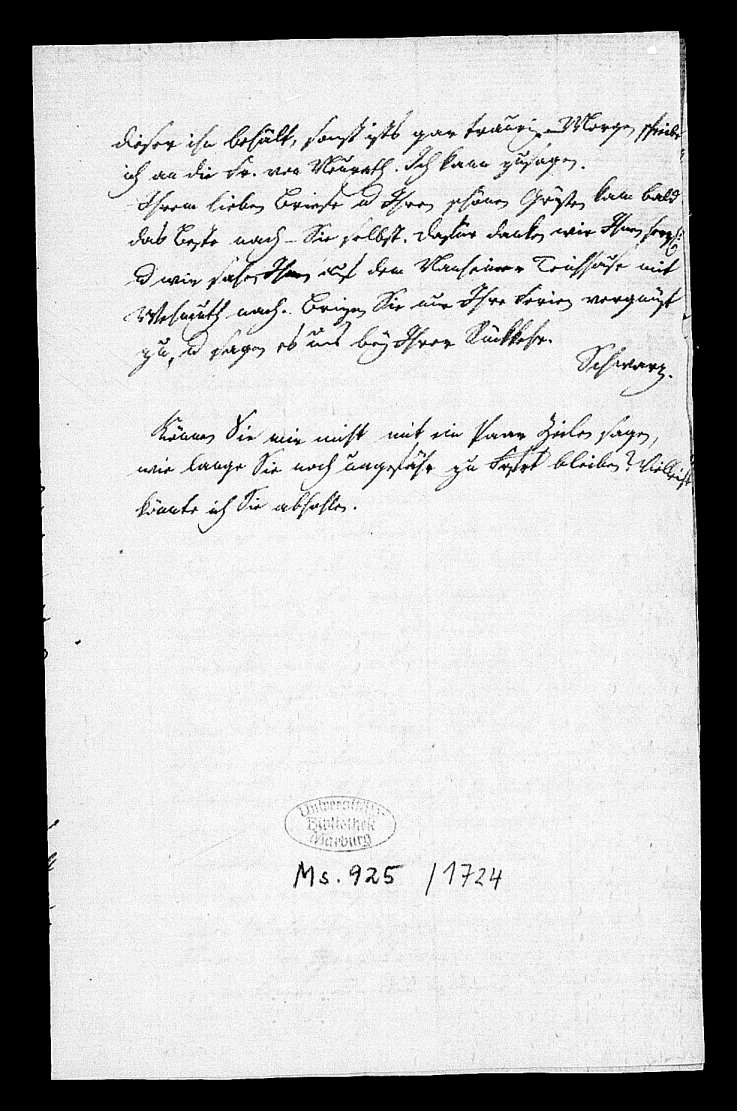 dieser ihn behält, sonst ists gar traurig. Morgen schreibe
ich an die Fr. von Neurath. Ich kann zusagen.
Ihrem lieben Briefe u Ihren schönen Grüßen kam bald
das Beste nach – Sie selbst. Dafür danken wir Ihnen
u wir sahen Ihnen auf dem Manheimer mit
Wehmuth nach. Bringen Sie nur Ihre Ferien vergnügt
zu, u sagen es uns bey Ihrer Rückkehr.
Schwarz.
Können Sie mir nicht mit ein Paar Zeilen sagen,
wie lange Sie noch ungefähr zu bleiben? Vielleicht
könnte ich Sie abhohlen.
Universitäts-
Bibliothek
Marburg
Ms. 925 / 1724